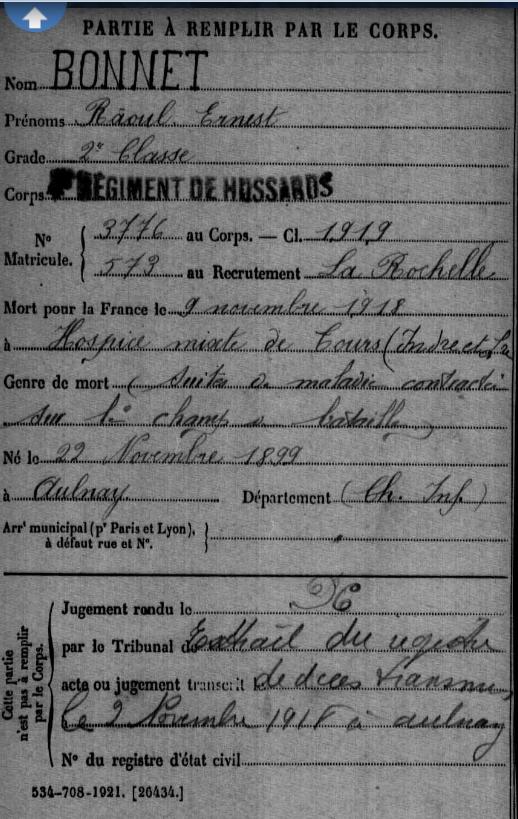 PARTIE À REMPLIR PAR LE CORPS.
Nom BONNET
Prénoms Râoul Ernest
Grade 2e Classe
Corps RÉGIMENT DE HUSSARDS
No Matricule. 3776 au Corps. — Cl. 1919
573 au Recrutement La Rochelle
Mort pour la France le 9 novembre 1918
à Hospice mixte de Tours (Indre et Lre
Genre de mort (suites de maladie contractée
sur le champ de bataille)
Né le 22 Novembre 1899
à Aulnay Département (Ch. Inf.)
Arrt municipal (pr Paris et Lyon),
à défaut rue et No.
Cette partie
n'est pas à remplir
par le Corps.
Jugement rendu le
par le Tribunal de Extrait du registre
acte ou jugement transcrit de décès transmis
le 2 Novembre 1918 à aulnay
No du registre d'état civil
534-708-1921. [26434.]